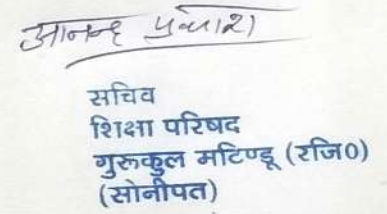 आनन्द प्रकाश
सचिव
शिक्षा परिषद
गुरूकुल मटिण्डू (रजि0)
(सोनीपत)